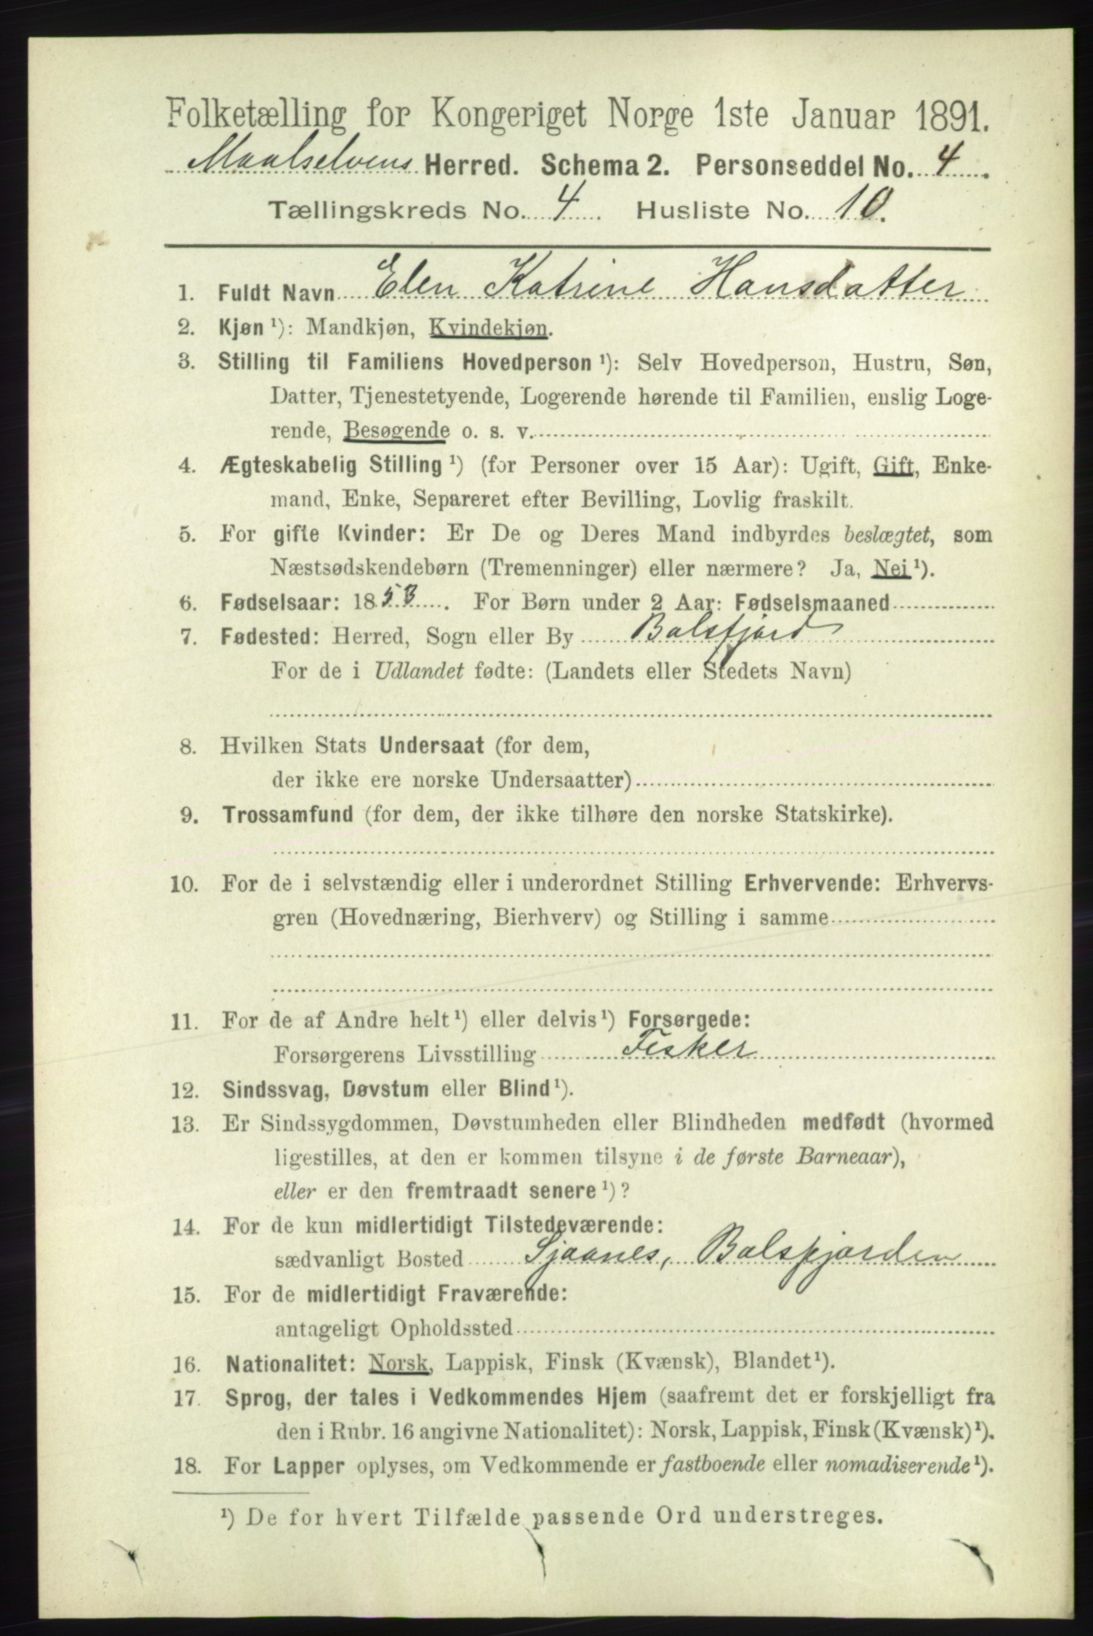 Folketælling for Kongeriget Norge 1ste Januar 1891.
Maalselvens Herred. Schema 2. Personseddel No. 4.
Tællingskreds No. 4. Husliste No. 10.
1. Fuldt Navn Elen Katrine Hansdatter
2. Kjøn ¹): Mandkjøn, Kvindekjøn.
3. Stilling til Familiens Hovedperson ¹): Selv Hovedperson, Hustru, Søn,
Datter, Tjenestetyende, Logerende hørende til Familien, enslig Loge-
rende, Besøgende o. s. v.
4. Ægteskabelig Stilling ¹) (for Personer over 15 Aar): Ugift, Gift, Enke-
mand, Enke, Separeret efter Bevilling, Lovlig fraskilt.
5. For gifte Kvinder: Er De og Deres Mand indbyrdes beslægtet, som
Næstsødskendebørn (Tremenninger) eller nærmere? Ja, Nei ¹).
6. Fødselsaar: 1853. For Børn under 2 Aar: Fødselsmaaned
7. Fødested: Herred, Sogn eller By Balsfjord
For de i Udlandet fødte: (Landets eller Stedets Navn)
8. Hvilken Stats Undersaat (for dem,
der ikke ere norske Undersaatter)
9. Trossamfund (for dem, der ikke tilhøre den norske Statskirke).
10. For de i selvstændig eller i underordnet Stilling Erhvervende: Erhvervs-
gren (Hovednæring, Bierhverv) og Stilling i samme
11. For de af Andre helt ¹) eller delvis ¹) Forsørgede:
Forsørgerens Livsstilling Fisker
12. Sindssvag, Døvstum eller Blind ¹).
13. Er Sindssygdommen, Døvstumheden eller Blindheden medfødt (hvormed
ligestilles, at den er kommen tilsyne i de første Barneaar),
eller er den fremtraadt senere ¹)?
14. For de kun midlertidigt Tilstedeværende:
sædvanligt Bosted Sjaanes, Balsfjorden
15. For de midlertidigt Fraværende:
antageligt Opholdssted
16. Nationalitet: Norsk, Lappisk, Finsk (Kvænsk), Blandet ¹).
17. Sprog, der tales i Vedkommendes Hjem (saafremt det er forskjelligt fra
den i Rubr. 16 angivne Nationalitet): Norsk, Lappisk, Finsk (Kvænsk) ¹).
18. For Lapper oplyses, om Vedkommende er fastboende eller nomadiserende ¹).
¹) De for hvert Tilfælde passende Ord understreges.